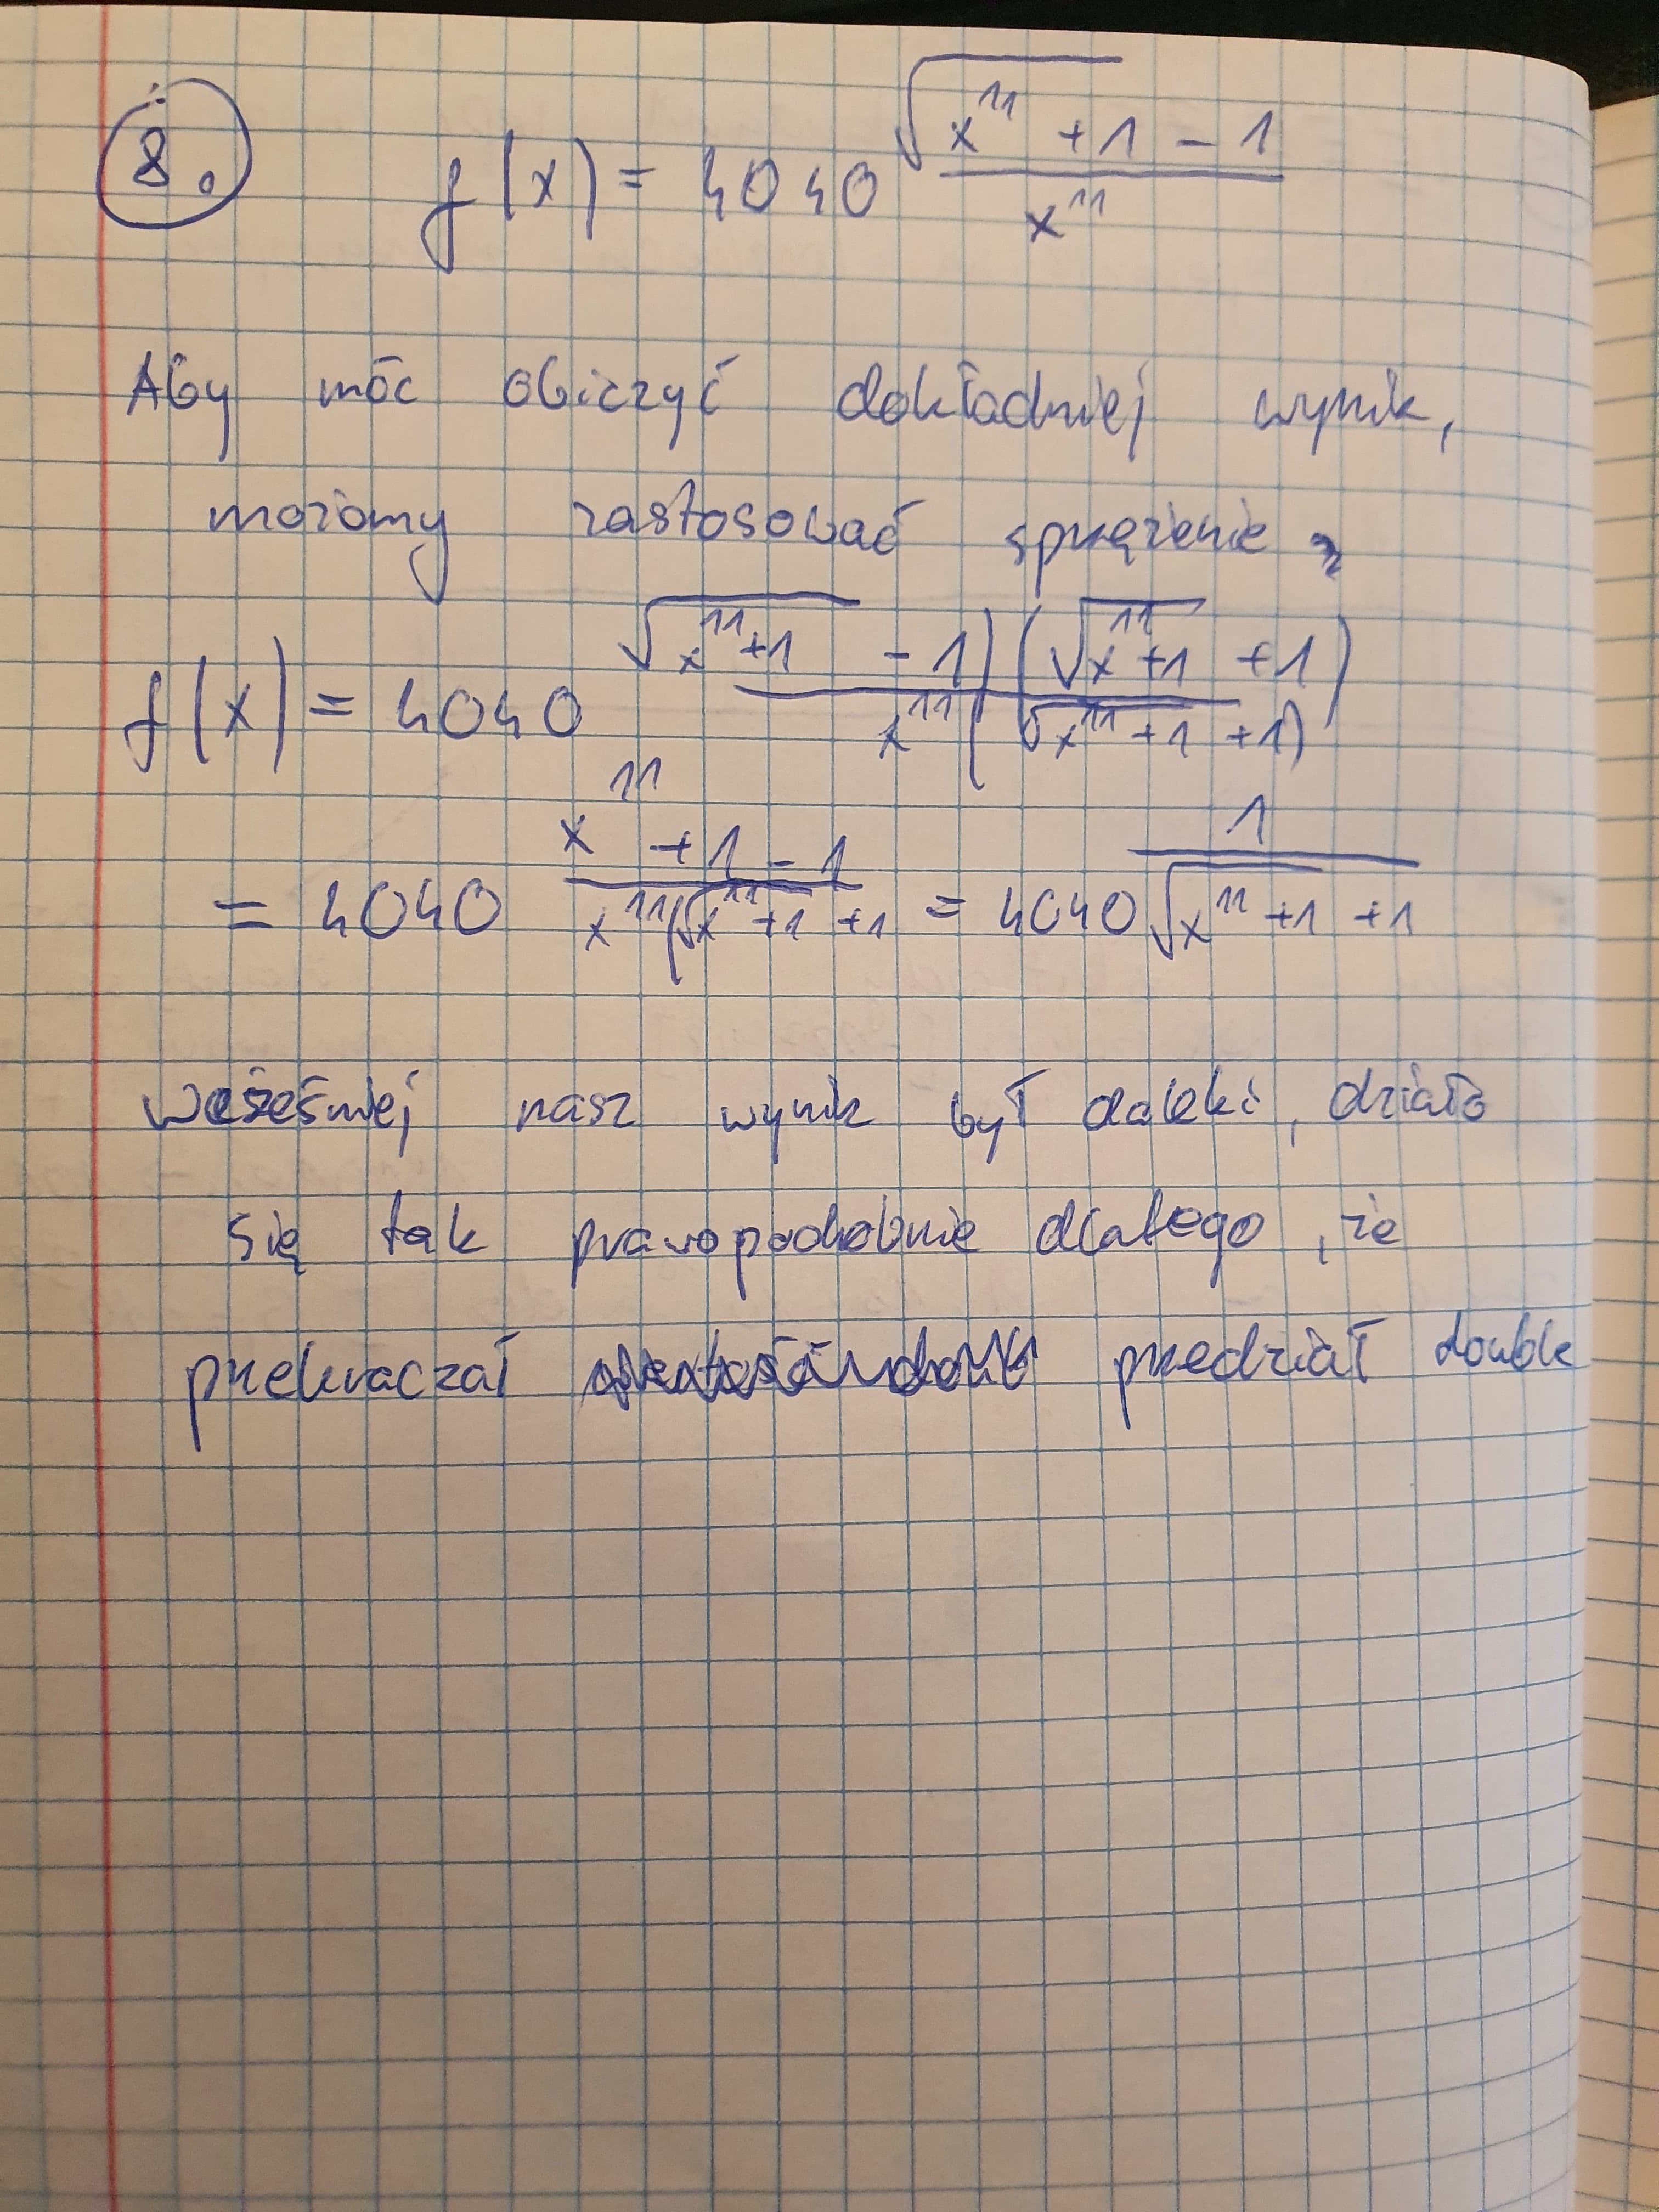 8.
f(x) = 4040 \frac{\sqrt{x^{11}+1}-1}{x^{11}}
Aby móc obliczyć dokładniej wynik,
możemy zastosować sprzężenie
f(x) = 4040 \frac{\sqrt{x^{11}+1}-1)(\sqrt{x^{11}+1}+1)}{x^{11}(\sqrt{x^{11}+1}+1)}
= 4040 \frac{x^{11}+1-1}{x^{11}(\sqrt{x^{11}+1}+1} = 4040 \frac{1}{\sqrt{x^{11}+1}+1}
wcześniej nasz wynik był daleki, działo
się tak prawopodobnie dlatego, że
przekraczał przedział double